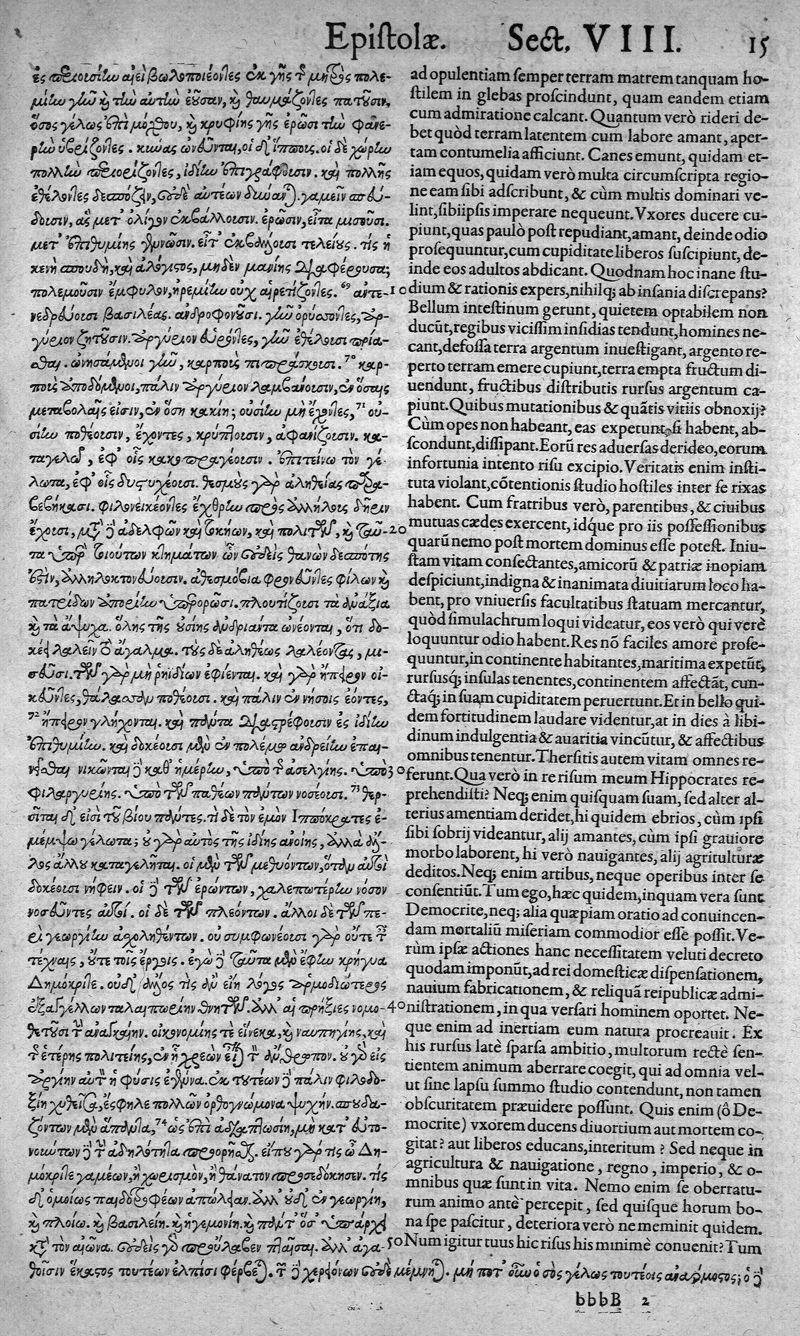 Epistolæ. Sect. VIII. 15
ἐς περιουσίην αἰεὶ βωλοποιέοντες ἐκ γῆς τ μητρὸς πολε-
μίην γῆν καὶ τὴν αὐτὴν ἐοῦσαν, καὶ θαυμάζοντες πατοῦσιν,
ὅσος γέλως ἐπὶ μόχθου, καὶ κρυφίης γῆς ἐρῶσι τὴν φανε-
ρὴν ὑβρίζοντες. κύνας ὠνεῦνται, οἱ δὲ ἵπποις. οἱ δὲ χωρίην
πολλὴν περιορίζοντες, ἰδίην ἐπιγράφουσιν. καὶ πολλῆς
ἐθέλοντες δεσπόζειν, οὐδὲ αὐτέων δύνανται. γαμεῖν σπεύ-
δουσιν, ἃς μετ᾽ ὀλίγον ἐκβάλλουσιν. ἐρῶσιν, εἶτα μισεῦσι.
μετ᾽ ἐπιθυμίης γεννῶσιν. εἶτ᾽ ἐκβάλλουσι τελείους. τίς ἡ
κενὴ σπουδὴ, καὶ ἀλόγιστος, μηδὲν μανίης διαφέρουσα;
πολεμοῦσιν ἔμφυλον, ἠρεμίην οὐχ αἱρετίζοντες. 69 ἀντε-
νεδρεύουσι βασιλέας. ἀνδροφονεῦσι. γῆν ὀρύσσοντες, ἀρ-
γύριον ζητοῦσιν. ἀργύριον εὑρόντες, γῆν ἐθέλουσι πρία-
σθαι. ὠνησάμενοι γῆν, καρποὺς πιπράσκουσι. 70 καρ-
ποὺς ἀποδόμενοι, πάλιν ἀργύριον λαμβάνουσιν, ἐν ὅσαις
μεταβολαῖς εἰσιν, ἐν ὅσῃ κακίῃ; οὐσίην μὴ ἔχοντες, 71 οὐ-
σίην ποθέουσιν, ἔχοντες, κρύπτουσιν, ἀφανίζουσιν. κα-
ταγελῶ, ἐφ᾽ οἷς κακοπραγέουσιν. ἐπιτείνω τὸν γέ-
λωτα, ἐφ᾽ οἷς δυστυχέουσι. θεσμοὺς γὰρ ἀληθείας παρα-
βεβήκασι. φιλονεικέοντες ἔχθρην πρὸς ἀλλήλους δῆριν
ἔχουσι, μετὰ ἀδελφῶν καὶ τοκήων, καὶ πολιτῶν, καὶ ταῦ-
τα ὑπὲρ τοιούτων κτημάτων ὧν οὐδεὶς θανὼν δεσπότης
ἐστὶν, ἀλληλοκτονεῦουσιν. ἀθεσμόβια φρονεῦντες φίλων καὶ
πατρίδων ἀπορίην ὑπερορῶσι. πλουτίζουσι τὰ ἀνάξια
καὶ τὰ ἄψυχα. ὅλης τῆς οὐσίης ἀνδριάντα ὠνέονται, ὅτι δο-
κέει λαλεῖν τὸ ἄγαλμα. τοὺς δὲ ἀληθέως λαλέοντας, μι-
σεῦσι. τῶν γὰρ μὴ ῥηϊδίων ἐφίενται. καὶ γὰρ ἤπειρον οἰ-
κεῦντες, θάλασσαν ποθέουσι. καὶ πάλιν ἐν νήσοις ἐόντες,
72 ἠπείρων γλίχονται. καὶ πάντα διαστρέφουσιν ἐς ἰδίην
ἐπιθυμίην. καὶ δοκέουσι μὲν ἐν πολέμῳ ἀνδρείην ἐπαι-
νεῖσθαι νικῶνται δὲ καθ᾽ ἡμέρην, ὑπὸ τ ἀσελγίης. ὑπὸ
φιλαργυρίης. ὑπὸ τῶν παθέων πάντων νοσέουσι. 73 θερ-
σῖται δὲ εἰσὶ τοῦ βίου πάντες. τί δὲ τὸν ἐμὸν Ἱπποκρατες ἐ-
μέμψω γέλωτα; οὐ γὰρ αὐτὸς τῆς ἰδίης ἀνοίης, ἀλλὰ ἄλ-
λος ἄλλου καταγελῆται. οἱ μὲν τῶν μεθυόντων, ὅταν αὐτοὶ
δοκέουσι νήφειν. οἱ δὲ τῶν ἐρώντων, χαλεπωτέρην νόσον
νοσεῦντες αὐτοί. οἱ δὲ τῶν πλεόντων. ἄλλοι δὲ τῶν πε-
ρὶ γεωργίην ἀσχοληθέντων. οὐ συμφωνέουσι γὰρ οὔτε τ
τέχναις, οὔτε τοῖς ἔργοις. ἐγὼ δὲ ταῦτα μὲν ἔφην κρήγυα
Δημόκριτε. οὐδ᾽ ἄλλος τις ἂν εἴη λόγος ἁρμοδιώτερος
ἐξαγγέλλων ταλαιπωρίην θνητῶν. ἀλλ᾽ αἱ πρήξιες νομο-
θετοῦσι τ ἀναγκαίην. οἰκονομίης τε εἵνεκα, καὶ ναυπηγίης, καὶ
τ ἑτέρης πολιτείης, ἐν ᾗ χρεὼν εἶναι τ ἄνθρωπον. οὐ γὰρ εἰς
ἀργίην αὐτὸν ἡ φύσις ἐγέννα. ἐκ τουτέων δὲ πάλιν φιλοδο-
ξίη χυθεῖσα, ἔσφηλε πολλῶν ὀρθογνώμονα ψυχήν. σπουδα-
ζόντων μὲν ἅπαντα, 74 ὡς ἐπὶ ἀδιαπτωσίη, μὴ κατευτο-
νούντων δὲ τ ἀδηλότητα προορῆσαι. εἰπὲ γὰρ τίς ὦ Δη-
μόκριτε γαμέων, ἢ χωρισμὸν, ἢ θάνατον προσεδόκησεν. τίς
δὲ ὁμοίως παιδοτροφέων ἀπώλειαν. ἀλλ᾽ οὐδ᾽ ἐν γεωργίῃ,
καὶ πλοίῳ. καὶ βασιλείῃ. καὶ ἡγεμονίῃ. καὶ πάντ᾽ ὅσ᾽ ὑπάρχει
κατὰ τὸν αἰῶνα. οὐδεὶς γὰρ προὔλαβεν πλαῖσαι. ἀλλ᾽ ἀγα-
θοῖσιν ἕκαστος τουτέων ἐλπίσι φέρβεται. τ δὲ χερειόνων οὐδὲ μέμνηται. μή ποτ᾽ οὖν ὁ σὸς γέλως τουτέοις ἀνάρμοστος; ὁ δὲ
ad opulentiam semper terram matrem tanquam ho-
stilem in glebas proscindunt, quam eandem etiam
cum admiratione calcant. Quantum verò rideri de-
bet quòd terram latentem cum labore amant, aper-
tam contumelia afficiunt. Canes emunt, quidam et-
iam equos, quidam verò multa circumscripta regio-
ne eam sibi adscribunt, & cùm multis dominari ve-
lint, sibiipsis imperare nequeunt. Vxores ducere cu-
piunt, quas paulò post repudiant, amant, deinde odio
prosequuntur, cum cupiditate liberos suscipiunt, de-
inde eos adultos abdicant. Quodnam hoc inane stu-
10 dium & rationis expers, nihilq; ab insania discrepans?
Bellum intestinum gerunt, quietem optabilem non
ducũt, regibus vicissim insidias tendunt, homines ne-
cant, defossa terra argentum inuestigant, argento re-
perto terram emere cupiunt, terra empta fructum di-
uendunt, fructibus distributis rursus argentum ca-
piunt. Quibus mutationibus & quãtis vitiis obnoxij?
Cùm opes non habeant, eas expetunt, si habent, ab-
scondunt, dissipant. Eorũ res aduersas derideo, eorum
infortunia intento risu excipio. Veritatis enim insti-
tuta violant, cõtentionis studio hostiles inter se rixas
habent. Cum fratribus verò, parentibus, & ciuibus
20 mutuas cædes exercent, idq́ue pro iis possessionibus
quarũ nemo post mortem dominus esse potest. Iniu-
stam vitam consectantes, amicorũ & patriæ inopiam
despiciunt, indigna & inanimata diuitiarum loco ha-
bent, pro vniuersis facultatibus statuam mercantur,
quòd simulachrum loqui videatur, eos verò qui verè
loquuntur odio habent. Res nõ faciles amore prose-
quuntur, in continente habitantes, maritima expetũt,
rursusq; insulas tenentes, continentem affectãt, cun-
ctaq; in suam cupiditatem peruertunt. Et in bello qui-
dem fortitudinem laudare videntur, at in dies à libi-
dinum indulgentia & auaritia vincũtur, & affectibus
omnibus tenentur. Thersitis autem vitam omnes re-
30 ferunt. Qua verò in re risum meum Hippocrates re-
prehendisti? Neq; enim quisquam suam, sed alter al-
terius amentiam deridet, hi quidem ebrios, cùm ipsi
sibi sobrij videantur, alij amantes, cùm ipsi grauiore
morbo laborent, hi verò nauigantes, alij agriculturæ
deditos. Neq; enim artibus, neque operibus inter se
consentiũt. Tum ego, hæc quidem, inquam vera sunt
Democrite, neq; alia quæpiam oratio ad conuincen-
dam mortaliũ miseriam commodior esse possit. Ve-
rùm ipsæ actiones hanc necessitatem veluti decreto
quodam imponũt, ad rei domesticæ dispensationem,
nauium fabricationem, & reliquã reipublicæ admi-
40 nistrationem, in qua versari hominem oportet. Ne-
que enim ad inertiam eum natura procreauit. Ex
his rursus latè sparsa ambitio, multorum rectè sen-
tientem animum aberrare coegit, qui ad omnia vel-
ut sine lapsu summo studio contendunt, non tamen
obscuritatem præuidere possunt. Quis enim (ô De-
mocrite) vxorem ducens diuortium aut mortem co-
gitat? aut liberos educans, interitum? Sed neque in
agricultura & nauigatione, regno, imperio, & o-
mnibus quæ sunt in vita. Nemo enim se oberratu-
rum animo antè percepit, sed quisque horum bo-
na spe pascitur, deteriora verò ne meminit quidem.
50 Num igitur tuus hic risus his minimè conuenit? Tum
bbbB 2